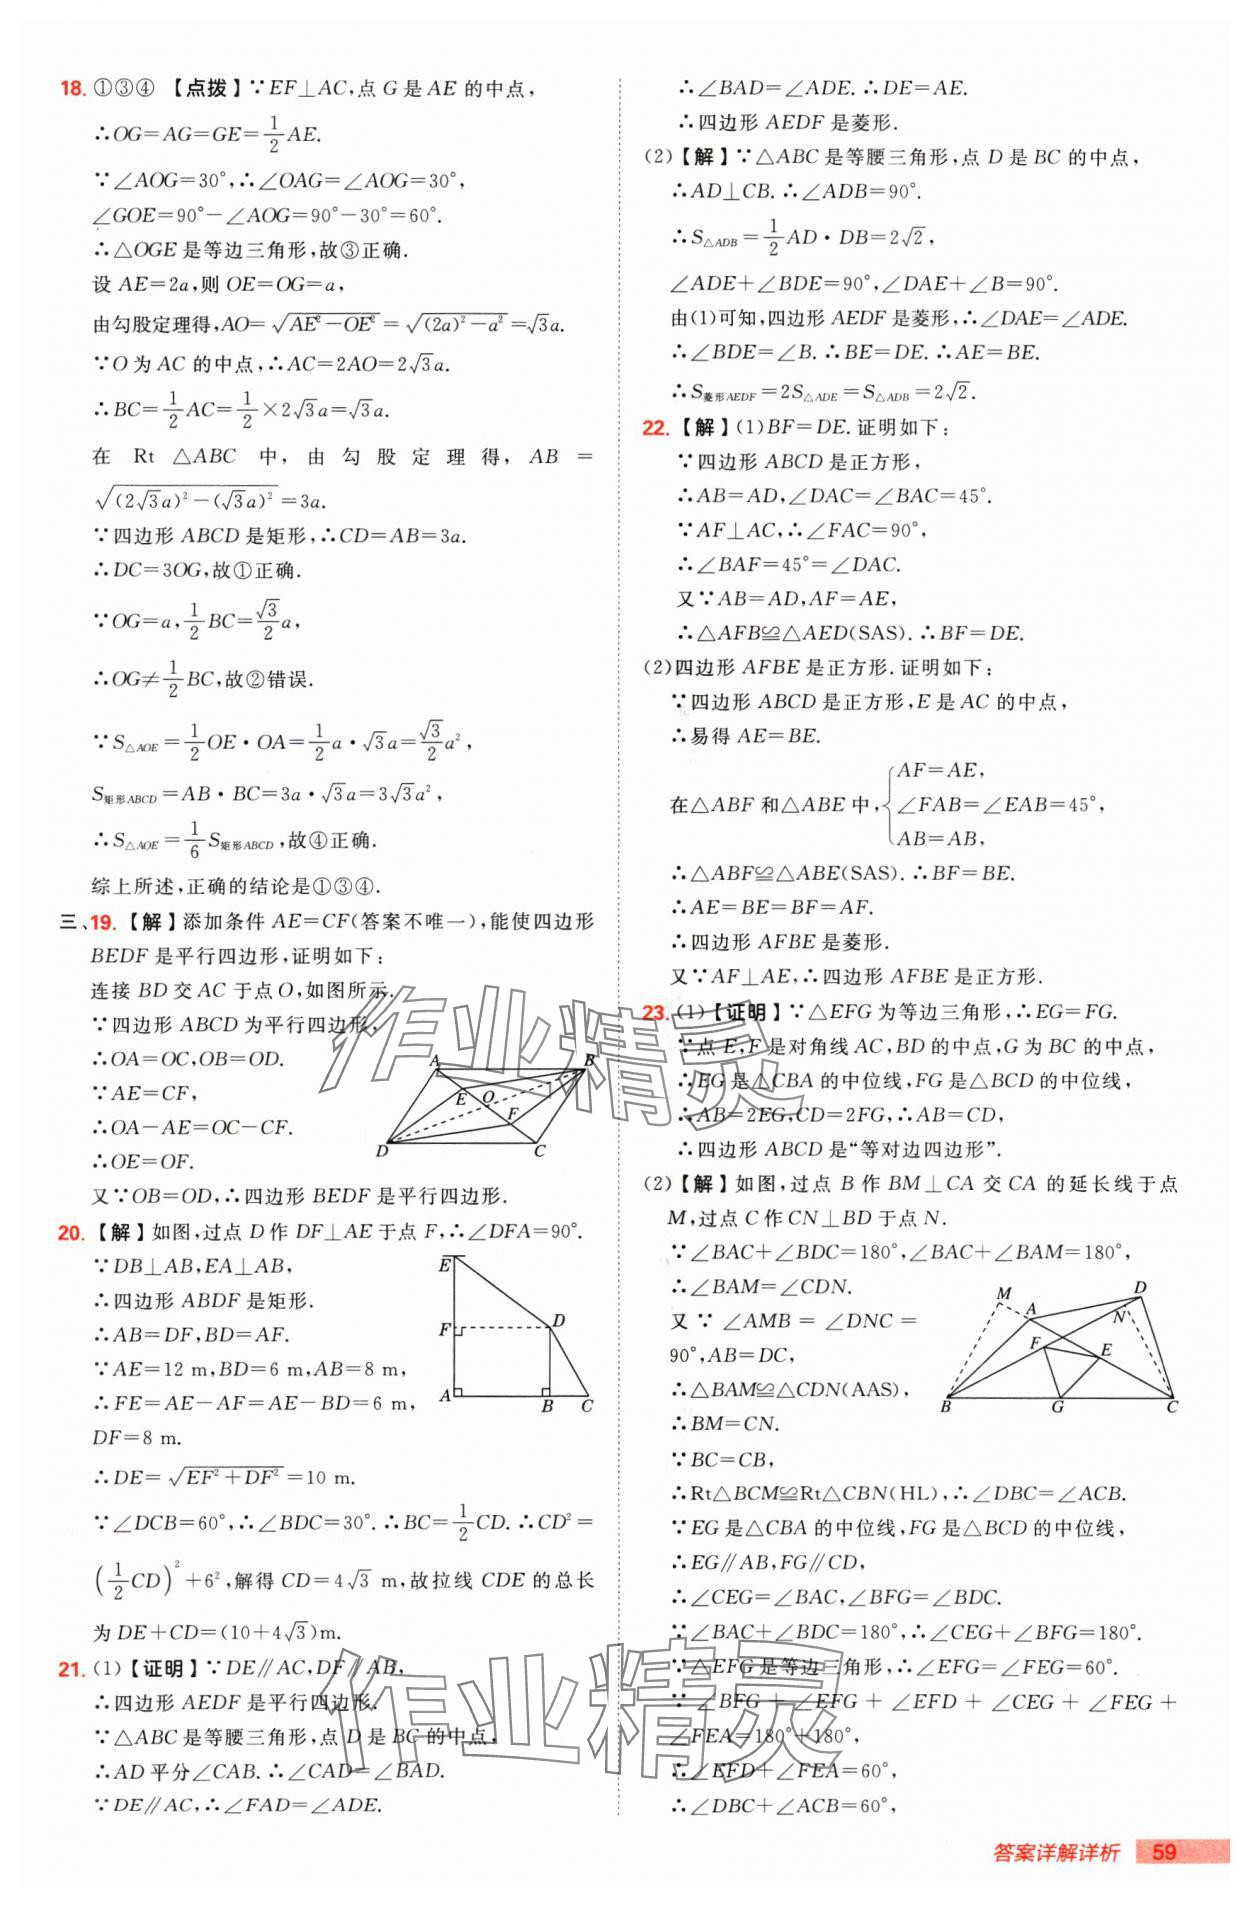 18. ①③④ 【点拨】∵EF⊥AC,点 G 是 AE 的中点,
∴OG=AG=GE=1/2 AE.
∵∠AOG=30°,∴∠OAG=∠AOG=30°,
∠GOE=90°-∠AOG=90°-30°=60°.
∴△OGE 是等边三角形,故③正确.
设 AE=2a,则 OE=OG=a,
由勾股定理得,AO=√(AE²-OE²)=√((2a)²-a²)=√3a.
∵O 为 AC 的中点,∴AC=2AO=2√3a.
∴BC=1/2 AC=1/2×2√3a=√3a.
在 Rt △ABC 中,由勾股定理得,AB=
√((2√3a)²-(√3a)²)=3a.
∵四边形 ABCD 是矩形,∴CD=AB=3a.
∴DC=3OG,故①正确.
∵OG=a,1/2 BC=√3/2 a,
∴OG≠1/2 BC,故②错误.
∵S△AOE=1/2 OE·OA=1/2 a·√3a=√3/2 a²,
S矩形ABCD=AB·BC=3a·√3a=3√3a²,
∴S△AOE=1/6 S矩形ABCD,故④正确.
综上所述,正确的结论是①③④.
三、19. 【解】添加条件 AE=CF(答案不唯一),能使四边形
BEDF 是平行四边形,证明如下:
连接 BD 交 AC 于点 O,如图所示.
∵四边形 ABCD 为平行四边形,
∴OA=OC,OB=OD.
∵AE=CF,
∴OA-AE=OC-CF.
∴OE=OF.
又∵OB=OD,∴四边形 BEDF 是平行四边形.
A B E O F D C
20. 【解】如图,过点 D 作 DF⊥AE 于点 F,∴∠DFA=90°.
∵DB⊥AB,EA⊥AB,
∴四边形 ABDF 是矩形.
∴AB=DF,BD=AF.
∵AE=12 m,BD=6 m,AB=8 m,
∴FE=AE-AF=AE-BD=6 m,
DF=8 m.
E F D A B C
∴DE=√(EF²+DF²)=10 m.
∵∠DCB=60°,∴∠BDC=30°.∴BC=1/2 CD.∴CD²=
(1/2 CD)²+6²,解得 CD=4√3 m,故拉线 CDE 的总长
为 DE+CD=(10+4√3)m.
21. (1)【证明】∵DE∥AC,DF∥AB,
∴四边形 AEDF 是平行四边形.
∵△ABC 是等腰三角形,点 D 是 BC 的中点,
∴AD 平分∠CAB.∴∠CAD=∠BAD.
∵DE∥AC,∴∠FAD=∠ADE.
∴∠BAD=∠ADE.∴DE=AE.
∴四边形 AEDF 是菱形.
(2)【解】∵△ABC 是等腰三角形,点 D 是 BC 的中点,
∴AD⊥CB.∴∠ADB=90°.
∴S△ADB=1/2 AD·DB=2√2,
∠ADE+∠BDE=90°,∠DAE+∠B=90°.
由(1)可知,四边形 AEDF 是菱形,∴∠DAE=∠ADE.
∴∠BDE=∠B.∴BE=DE.∴AE=BE.
∴S菱形AEDF=2S△ADE=S△ADB=2√2.
22. 【解】(1)BF=DE.证明如下:
∵四边形 ABCD 是正方形,
∴AB=AD,∠DAC=∠BAC=45°.
∵AF⊥AC,∴∠FAC=90°,
∴∠BAF=45°=∠DAC.
又∵AB=AD,AF=AE,
∴△AFB≌△AED(SAS).∴BF=DE.
(2)四边形 AFBE 是正方形.证明如下:
∵四边形 ABCD 是正方形,E 是 AC 的中点,
∴易得 AE=BE.
在△ABF 和△ABE 中,{AF=AE,
∠FAB=∠EAB=45°,
AB=AB,
∴△ABF≌△ABE(SAS).∴BF=BE.
∴AE=BE=BF=AF.
∴四边形 AFBE 是菱形.
又∵AF⊥AE,∴四边形 AFBE 是正方形.
23. (1)【证明】∵△EFG 为等边三角形,∴EG=FG.
∵点 E,F 是对角线 AC,BD 的中点,G 为 BC 的中点,
∴EG 是△CBA 的中位线,FG 是△BCD 的中位线,
∴AB=2EG,CD=2FG,∴AB=CD,
∴四边形 ABCD 是“等对边四边形”.
(2)【解】如图,过点 B 作 BM⊥CA 交 CA 的延长线于点
M,过点 C 作 CN⊥BD 于点 N.
∵∠BAC+∠BDC=180°,∠BAC+∠BAM=180°,
∴∠BAM=∠CDN.
又∵∠AMB=∠DNC=
90°,AB=DC,
∴△BAM≌△CDN(AAS),
∴BM=CN.
∵BC=CB,
M A D N F E B G C
∴Rt△BCM≌Rt△CBN(HL),∴∠DBC=∠ACB.
∵EG 是△CBA 的中位线,FG 是△BCD 的中位线,
∴EG∥AB,FG∥CD,
∴∠CEG=∠BAC,∠BFG=∠BDC.
∵∠BAC+∠BDC=180°,∴∠CEG+∠BFG=180°.
∵△EFG 是等边三角形,∴∠EFG=∠FEG=60°.
∵∠BFG+∠EFG+∠EFD+∠CEG+∠FEG+
∠FEA=180°+180°,
∴∠EFD+∠FEA=60°,
∴∠DBC+∠ACB=60°,
作业精灵
作业精灵
答案详解详析 59